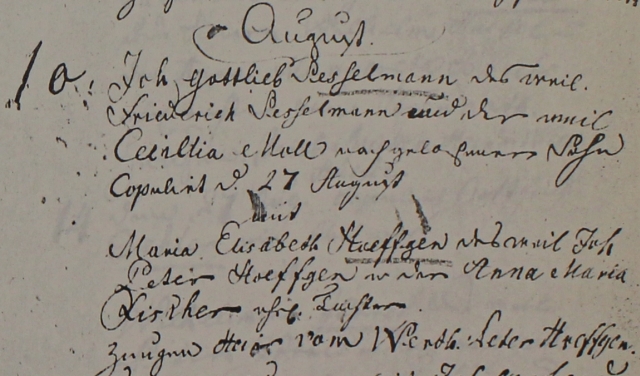 August.
10. Joh. Gottlieb Pesselmann des weil.
Friederich Pesselmann und der weil
Cecillia Moll nachgelassener Sohn
Copulirt d. 27 August
mit
Maria Elisabeth Hoeffgen des weil Joh
Peter Hoeffgen u der Anna Maria
Fischer ehel. Tochter.
Zeugen vom Werth. Peter Hoeffgen.